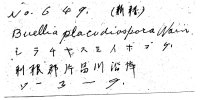 No. 649. (新種)
Buellia placodiospora Wain.
ミラキヤスミイボゴケ.
利根郡片品川沿岸
9-3-9.